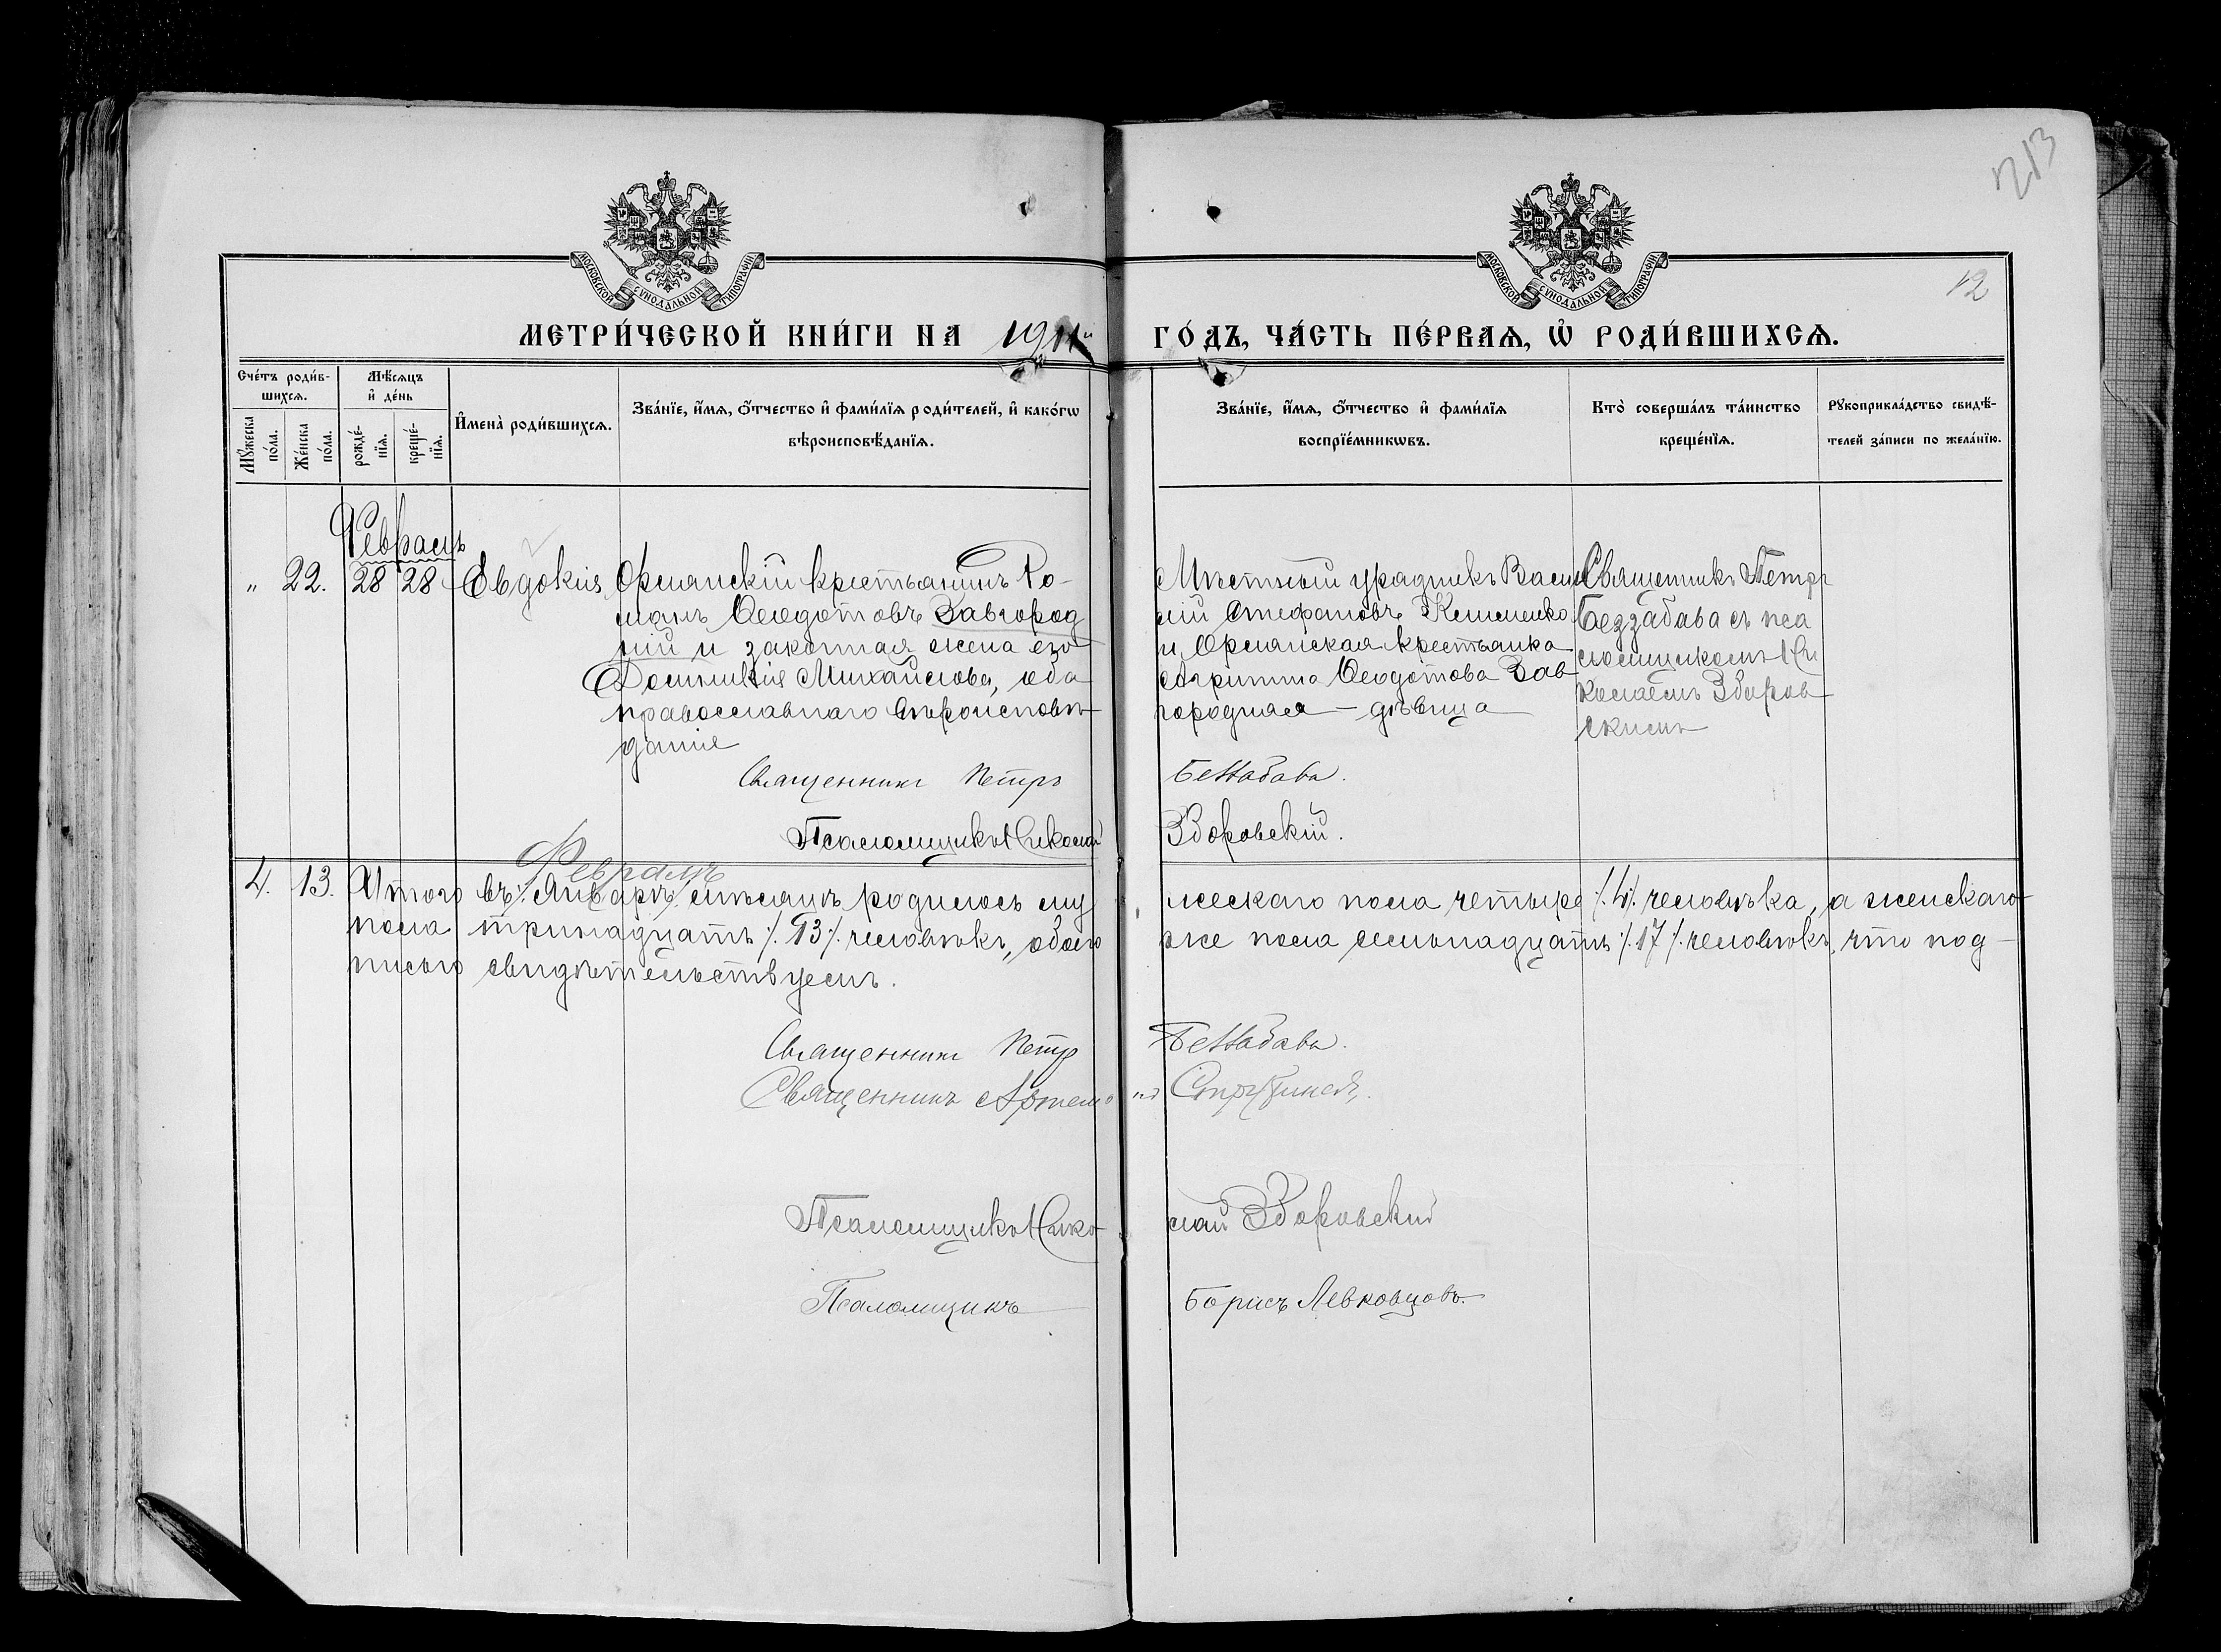 213
12
МОСКОВСКОЙ СѴНОДАЛЬНОЙ ТИПОГРАФІИ
МОСКОВСКОЙ СѴНОДАЛЬНОЙ ТИПОГРАФІИ
МЕТРИ́ЧЕСКОЙ КНИ́ГИ НА 1911й ГО́ДЪ, ЧА́СТЬ ПЕ́РВАЯ, Ѡ҆ РОДИ́ВШИХСЯ.
Сче́тъ роди́в-
шихся.
Мꙋ́жеска по́ла.
Же́нска по́ла.
Мѣ́сяцъ
и҆ де́нь
рожде́-
нїя.
креще́-
нїя.
И҆мена̀ роди́вшихся.
Зва́нїе, и҆́мя, ѻ҆́тчество и҆ фами́лїя роди́телей, и҆ како́гѡ
вѣроисповѣ́данїя.
Зва́нїе, и҆́мя, ѻ҆́тчество и҆ фами́лїя
воспрїе́мникѡвъ.
Кто̀ соверша́лъ та́инство
креще́нїя.
Рꙋкоприкла́дство свидѣ́-
телей за́писи по жела́нїю.
Февраль
" 22. 28 28 Евдокія
Орланскій крестьянинъ Ро-
манъ Ѳеодотовъ Завгород
ній и законная жена его
Михайлова, оба
православнаго вѣроисповѣ-
данія
Мѣстный урядникъ Васи
лій Стефановъ
и Орланская крестьянка
Агриппа Ѳеодотова Зав
городняя - дѣвица
Священникъ Петръ
Беззабава съ пса
ломщикомъ Ни
колаемъ Збаров
скимъ
Священникъ Петръ Беззабава.
Псаломщикъ Николай Зборовскій.
Февралѣ
4. 13. Итого въ /: Январѣ :/ мѣсяцѣ родилось му жескаго пола четыре /:4:/ человѣка, а женскаго
пола тринадцать /:13:/ человѣкъ, обоего же пола семьнадцать /:17:/ человѣкъ, что под-
писью свидѣтельствуемъ.
Священникъ Петр Беззабава.
Священникъ Артемонъ
Псаломщикъ Нико лай Зборовскій
Псаломщикъ Борисъ Левковцовъ.